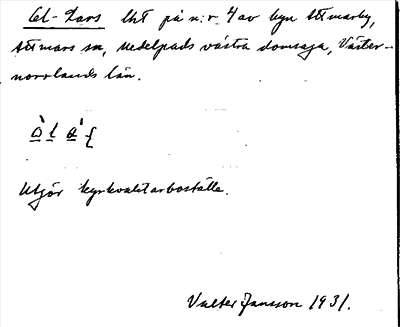 Ol-Lars lht på n:r 4 av byn Attmarby,
Attmars sn, Medelpads västra domsaga, Väster-
norrlands län.
Utgör kyrkvaktarboställe.
Valter Jansson 1931.